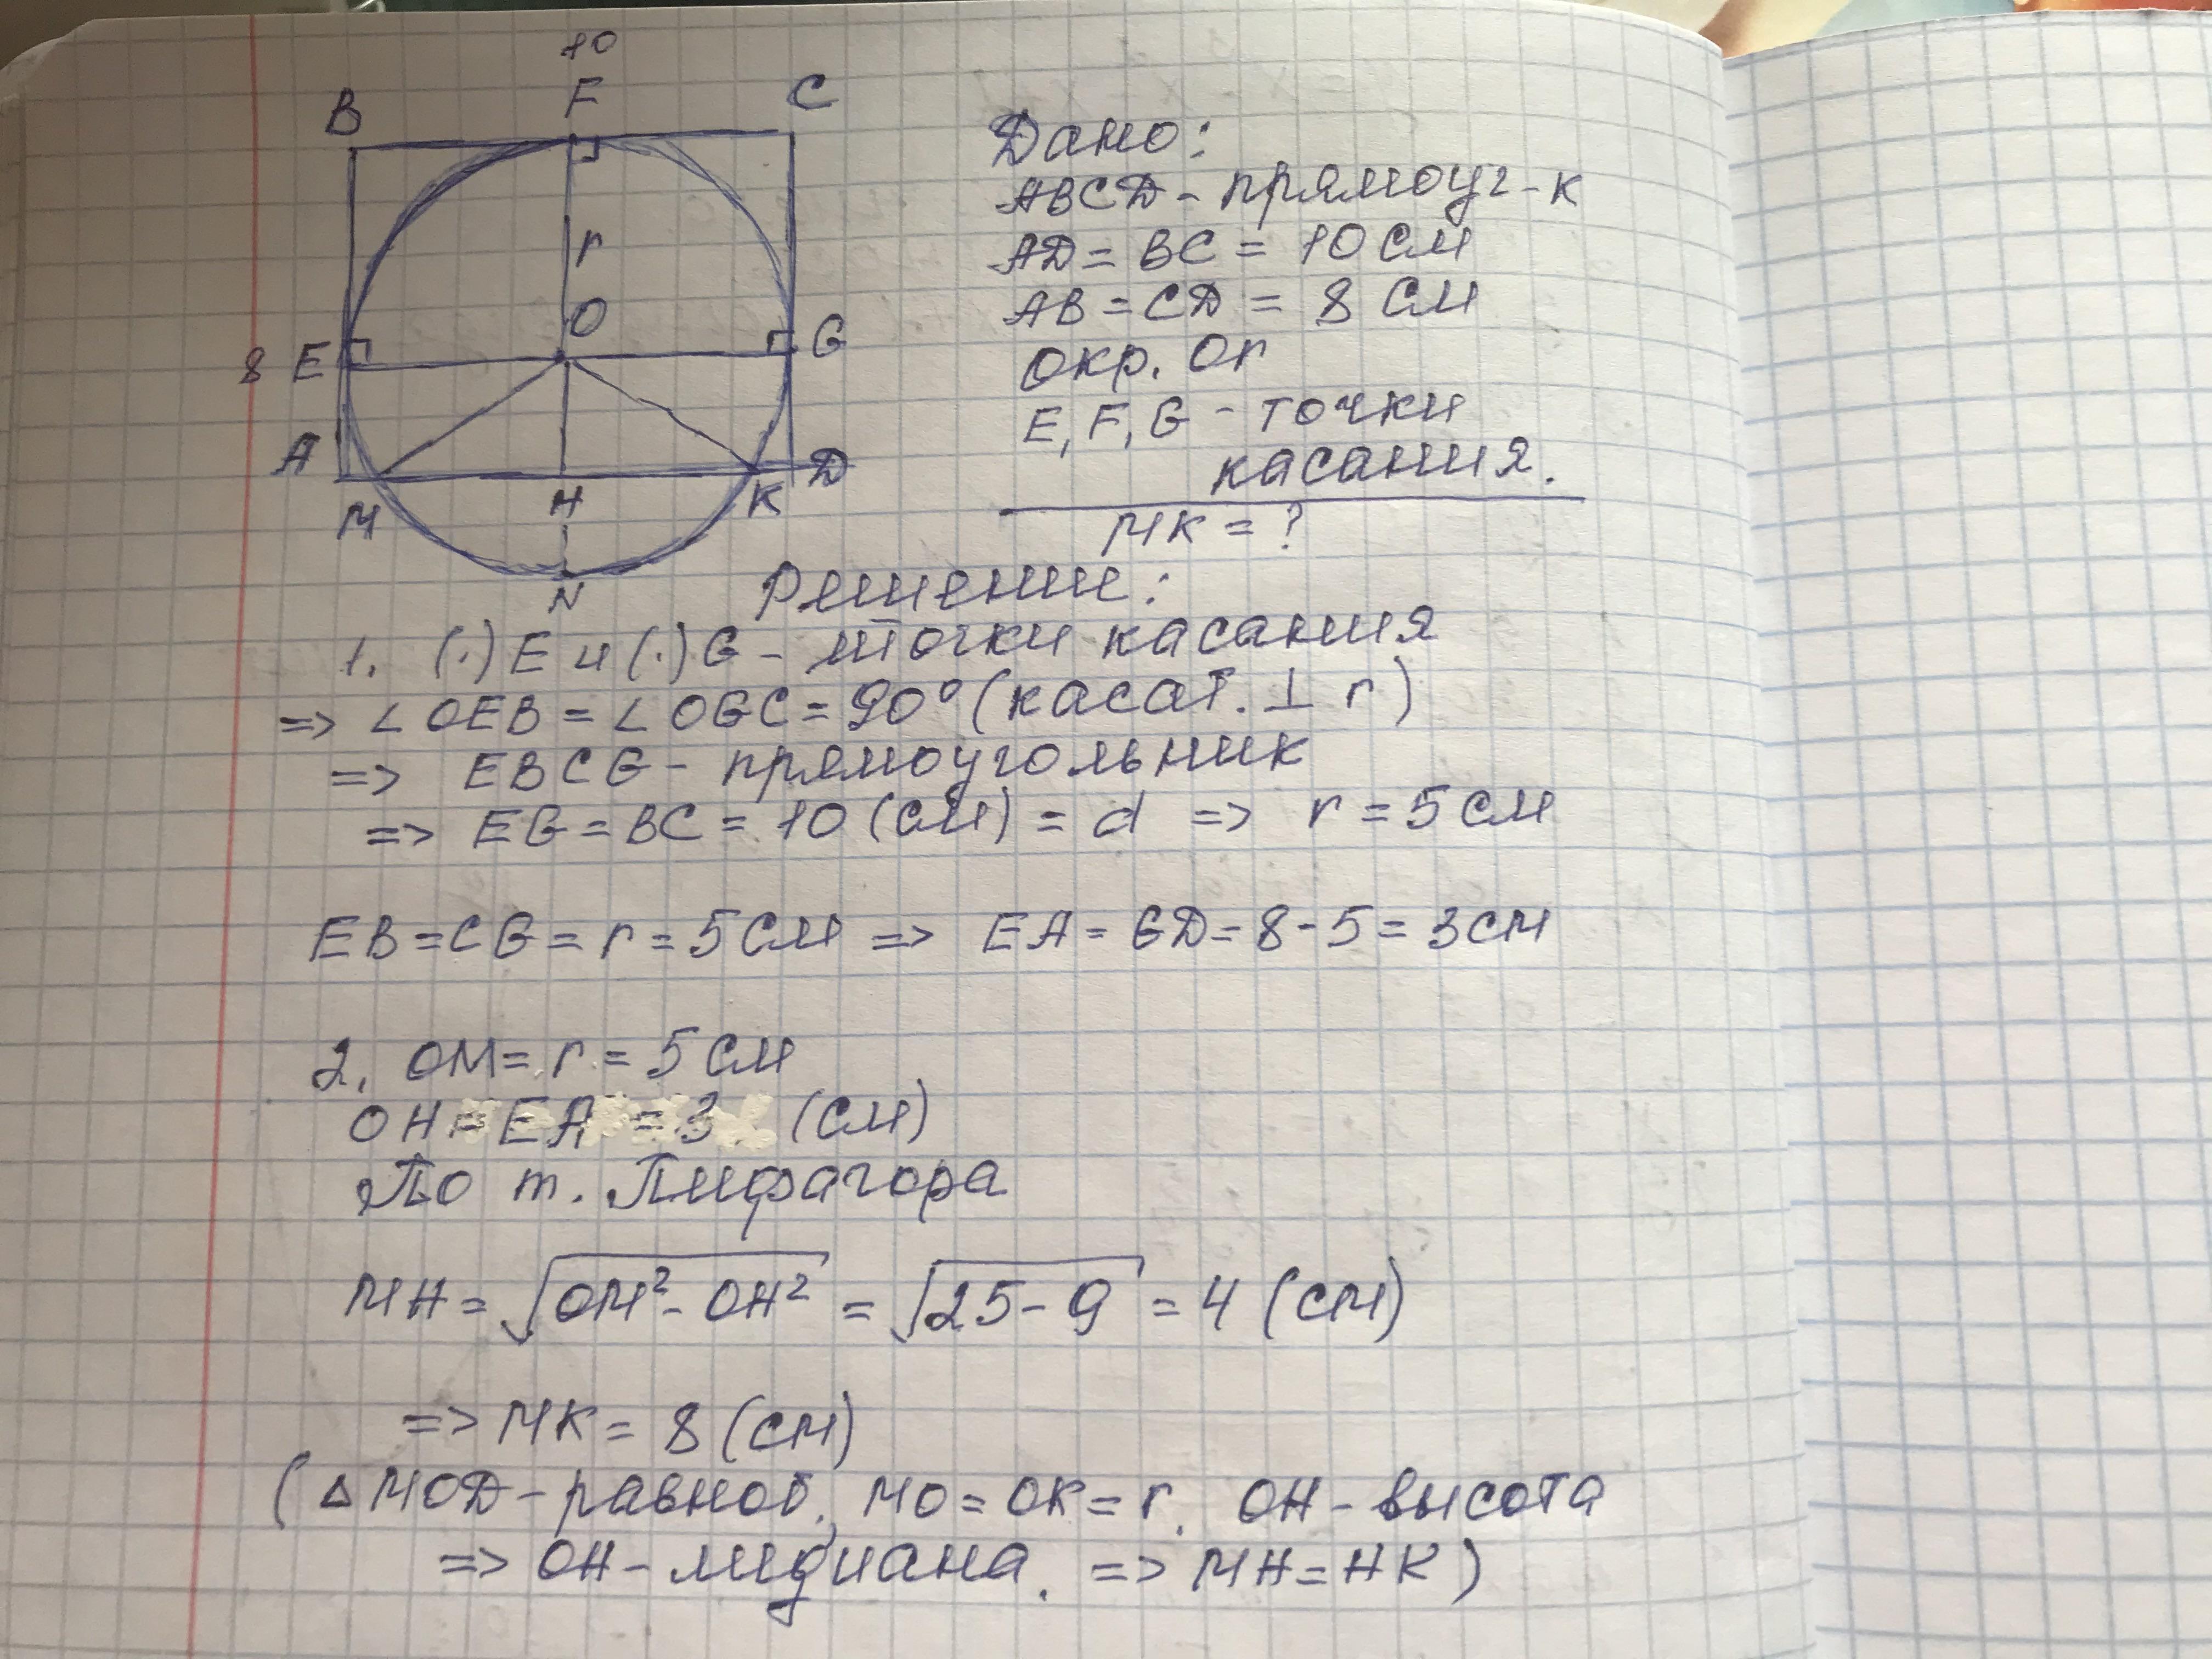 10
B F C
r
O
8 E G
A D
M H K
N
Дано:
ABCD - прямоуг-к
AD = BC = 10 см
AB = CD = 8 см
окр. Or
E, F, G - точки
касания.
MK = ?
Решение:
1. (.) E и (.) G - точки касания
=> ∠OEB = ∠OGC = 90° (касат. ⊥ r)
=> EBCG - прямоугольник
=> EG = BC = 10 (см) = d => r = 5 см
EB = CG = r = 5 см => EA = GD = 8 - 5 = 3 см
2. OM = r = 5 см
OH = EA = 3 (см)
По т. Пифагора
MH = √(OM² - OH²) = √(25 - 9) = 4 (см)
=> MK = 8 (см)
(△MOD - равноб. MO = OK = r. OH - высота
=> OH - мидиана. => MH = HK)